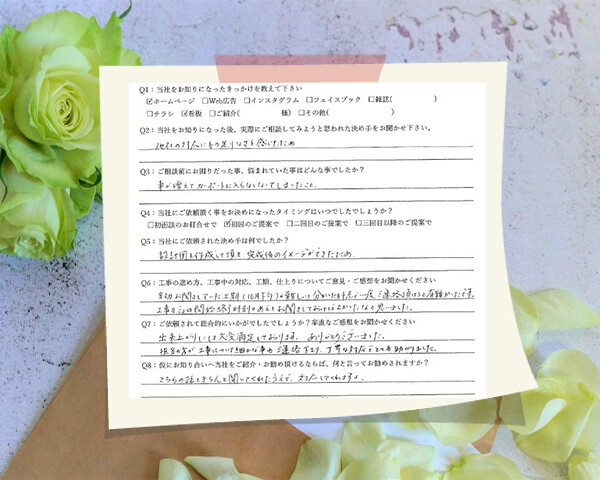 Q1：当社をお知りになったきっかけを教えて下さい
☑ホームページ □Web広告 □インスタグラム □フェイスブック □雑誌( )
□チラシ ☑看板 □ご紹介( 様) □その他( )
Q2：当社をお知りになった後、実際にご相談してみようと思われた決め手をお聞かせ下さい。
他社の対応にもの足りなさを感じたため
Q3：ご相談前にお困りだった事、悩まれていた事はどんな事でしたか？
車が増えてカーポートに入らなくなってしまったこと。
Q4：当社にご依頼頂く事をお決めになったタイミングはいつでしたでしょうか？
□初面談のお打合せで ☑初回のご提案で □二回目のご提案で □三回目以降のご提案で
Q5：当社にご依頼された決め手は何でしたか？
設計図を作成して頂き 完成後のイメージができたため
Q6：工事の進め方、工事中の対応、工期、仕上りについてご意見・ご感想をお聞かせください
当初お聞きしていた工期(10月下旬)が難しいと分かった時点で一度ご連絡頂けると有難かったです。
Q7：ご依頼されて総合的にいかがでしたでしょうか？率直なご感想をお聞かせください
出来上がりには大変満足しております。ありがとうございました。
担当の方が工事について細かな事もご連絡下さり、丁寧な対応がとても助かりました。
Q8：仮にお知り合いへ当社をご紹介・お勧め頂けるならば、何と言ってお勧めされますか？
こちらの話をきちんと聞いてくれたうえで、対応してくれますよ